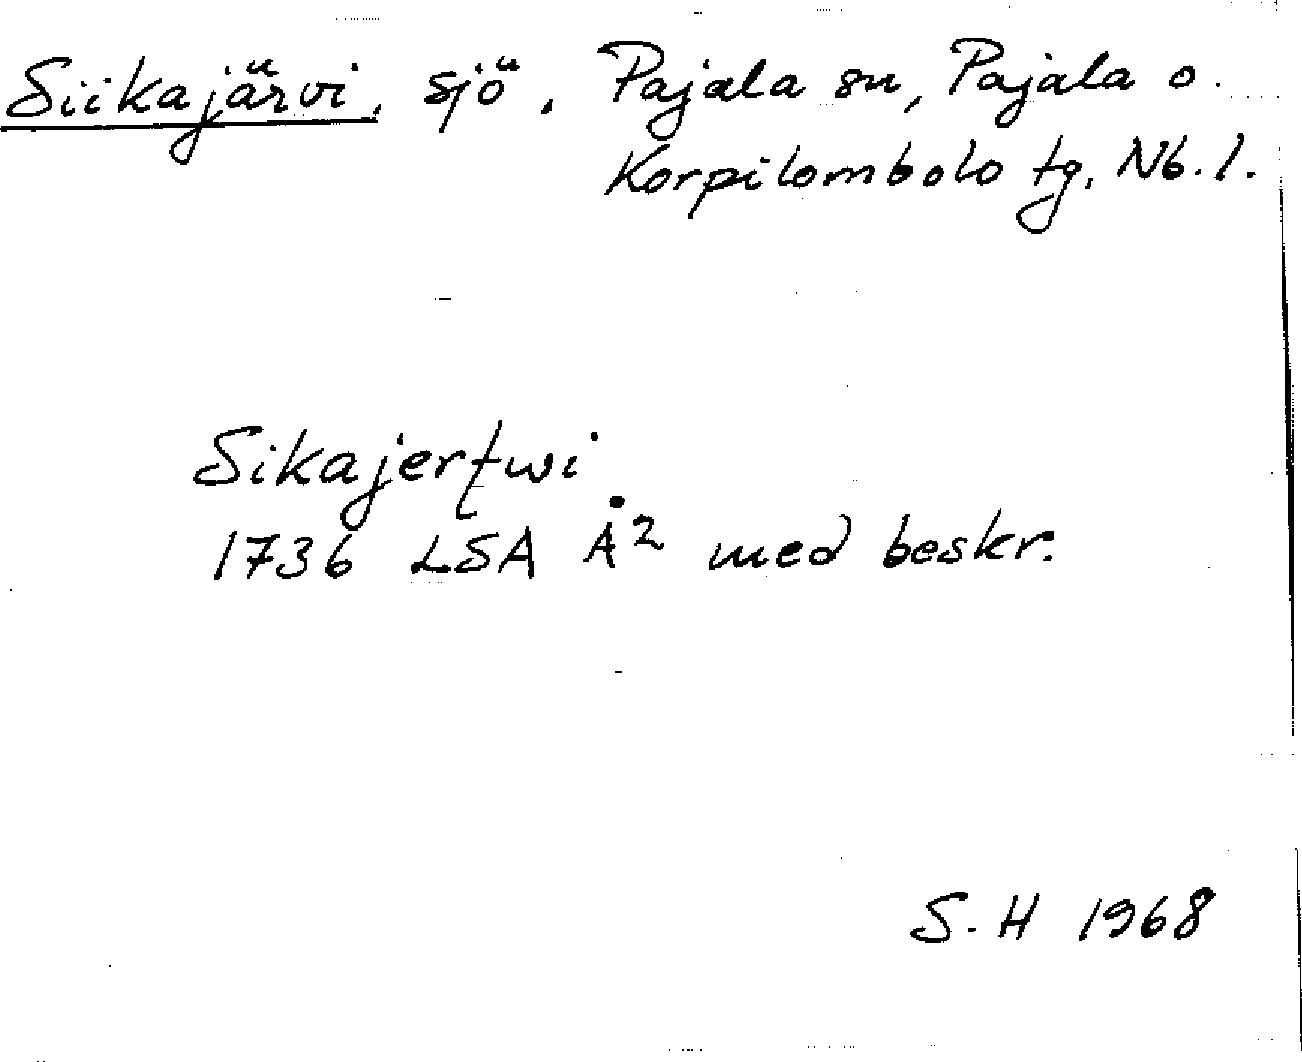 Siikajärvi, sjö, Pajala sn, Pajala o.
Korpilombolo tg, Nb. l.
Sikajerfwi
1736 LSA Å2 med beskr.
S. H 1968